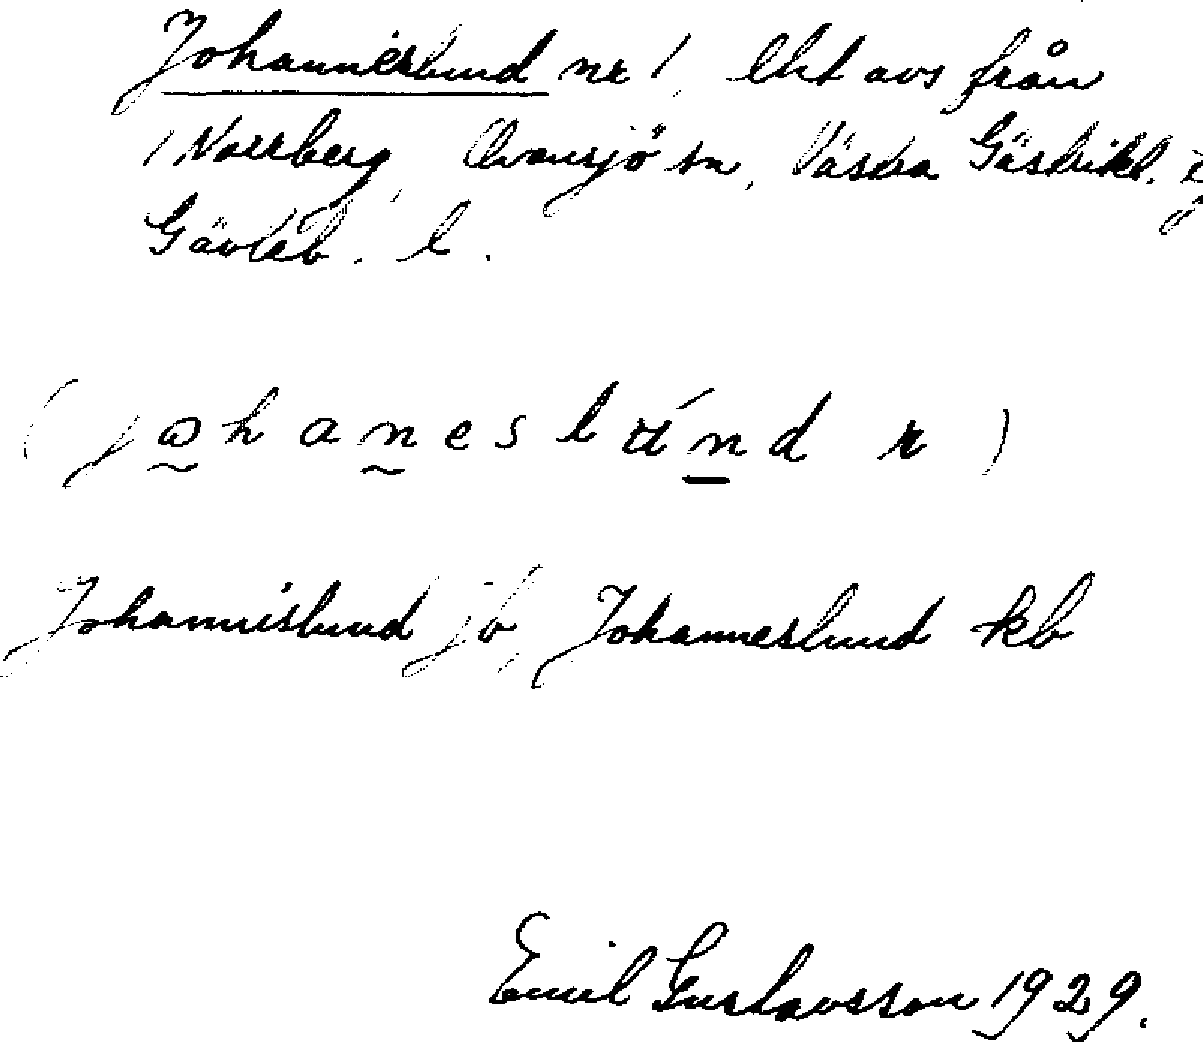 Johanneslund nr 1, lht avs från
1 Norrberg, Ovansjö sn, Västra Gästrikl.
Gävleb. l.
(johaneslund r)
Johannislund jb, Johanneslund kb
Emil Gustavsson 1929.